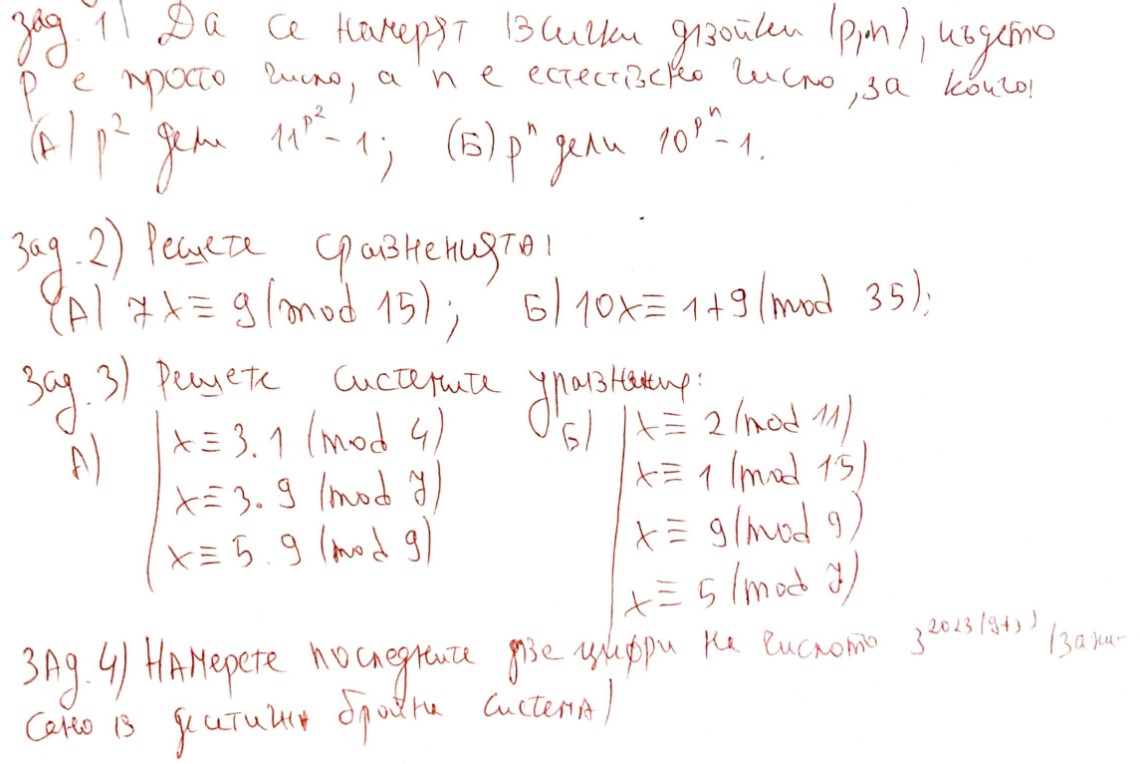 Зад. 1) Да се намерят всички двойки (p,n), където
p е просто число, а n е естествено число, за които:
(А) p² дели 11^{p²} - 1; (Б) pⁿ дели 10^{pⁿ} - 1.
Зад. 2) Решете сравненията:
(А) 7x ≡ 9 (mod 15); Б) 10x ≡ 1+9 (mod 35);
Зад. 3) Решете системите уравнения:
А) x ≡ 3.1 (mod 4)
x ≡ 3.9 (mod 7)
x ≡ 5.9 (mod 9)
Б) x ≡ 2 (mod 11)
x ≡ 1 (mod 15)
x ≡ 9 (mod 9)
x ≡ 5 (mod 7)
ЗАд. 4) НАмерете последните две цифри на числото 3^{2023 (запи-
сано в десетична бройна система)